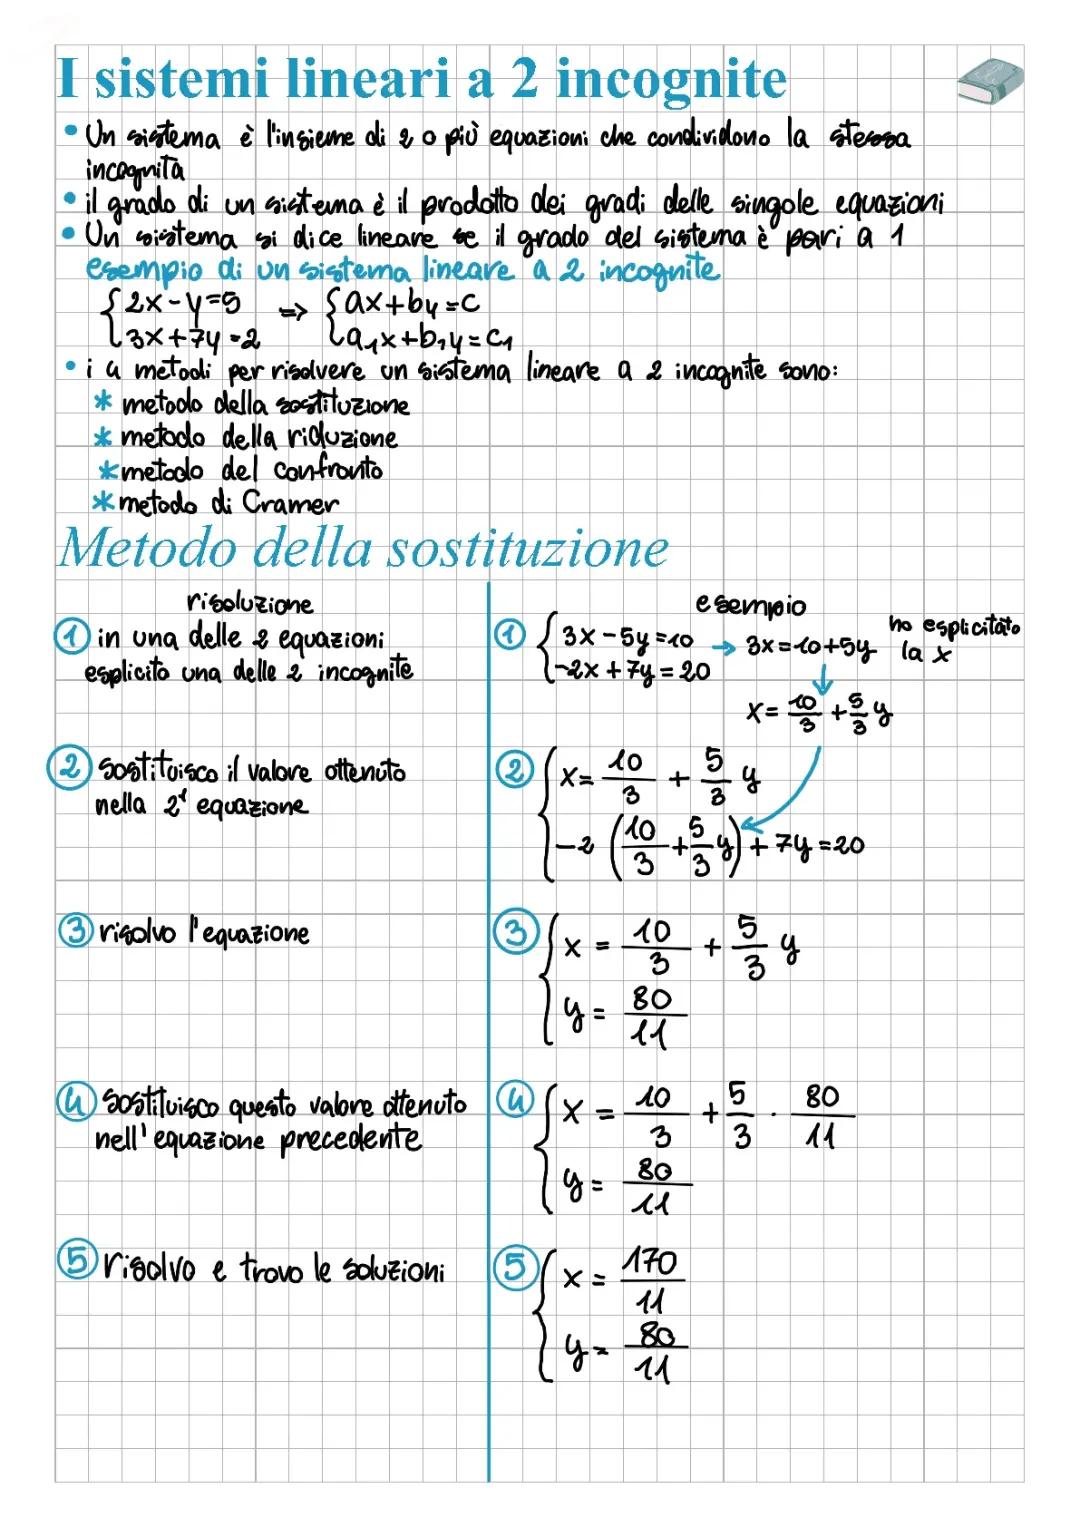 I sistemi lineari a 2 incognite
• Un sistema è l'insieme di 2 o più equazioni che condividono la stessa
incognita
• il grado di un sistema è il prodotto dei gradi delle singole equazioni
• Un sistema si dice lineare se il grado del sistema è pari a 1
esempio di un sistema lineare a 2 incognite
{2x-y=5 => {ax+by=c
3x+7y=2 a₁x+b₁y=c₁
• i 4 metodi per risolvere un sistema lineare a 2 incognite sono:
* metodo della sostituzione
* metodo della riduzione
* metodo del confronto
* metodo di Cramer
Metodo della sostituzione
risoluzione
① in una delle 2 equazioni
esplicito una delle 2 incognite
② sostituisco il valore ottenuto
nella 2ª equazione
③ risolvo l'equazione
④ sostituisco questo valore ottenuto
nell'equazione precedente
⑤ risolvo e trovo le soluzioni
esempio
① {3x-5y=10 → 3x=10+5y ho esplicitato
-2x+7y=20 la x
x= 10/3 + 5/3 y
② {x= 10/3 + 5/3 y
-2 (10/3 + 5/3 y) + 7y = 20
③ {x = 10/3 + 5/3 y
y = 80/11
④ {x = 10/3 + 5/3 · 80/11
y = 80/11
⑤ {x = 170/11
y = 80/11